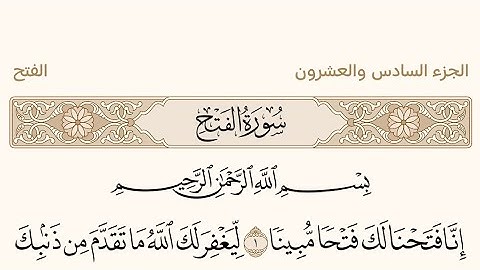 الجزء السادس والعشرون الفتح
سُورَةُ الفَتْحِ
بِسْمِ اللَّهِ الرَّحْمَٰنِ الرَّحِيمِ
إِنَّا فَتَحْنَا لَكَ فَتْحًا مُّبِينًا ١ لِّيَغْفِرَ لَكَ اللَّهُ مَا تَقَدَّمَ مِن ذَنۢبِكَ